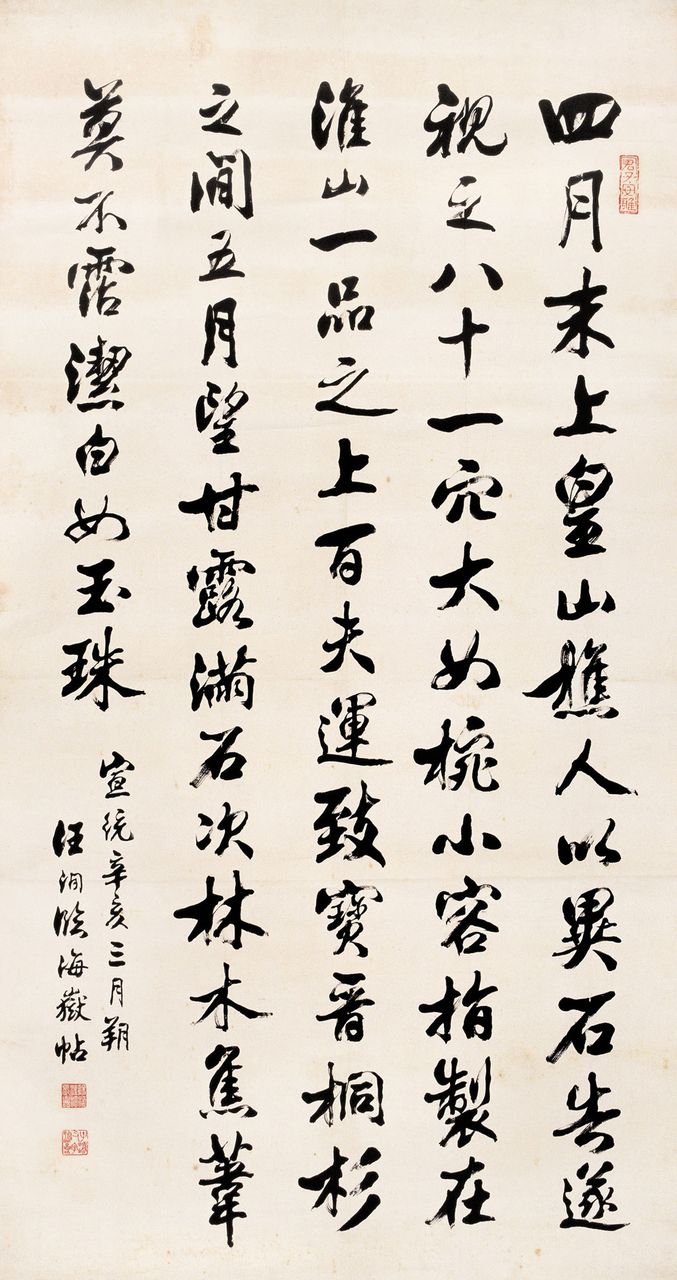 四月末上皇山樵人以異石告遂
視之八十一穴大如椀小容指製在
淮山一品之上百夫運致寶晉桐杉
之間五月望甘露滿石次林木焦葦
莫不霑潔白如玉珠
宣統辛亥三月朔
汪洵臨海嶽帖